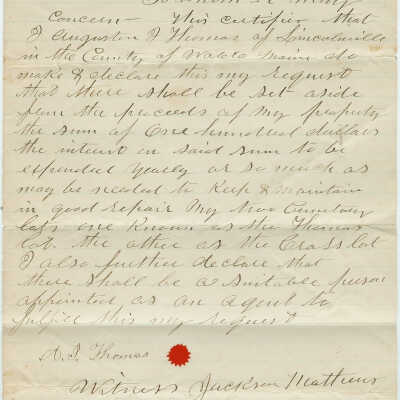 To whom it may
Concern - This certifies that
I Augustin P Thomas of Lincolnville
in the County of Waldo maine do
make & declare this my request
that there shall be set aside
from the proceeds of my property
the sum of One hundred dollars
the interest on said sum to be
expended yearly or so much as
may be needed to Keep & maintain
in good repair My two Cemetery
lots one Known as the Thomas
lot the other as the Crass lot
I also further declare that
there shall be a suitable person
appointed as an agent to
fulfill this my request
A. P. Thomas
Witness Jackson Mathews